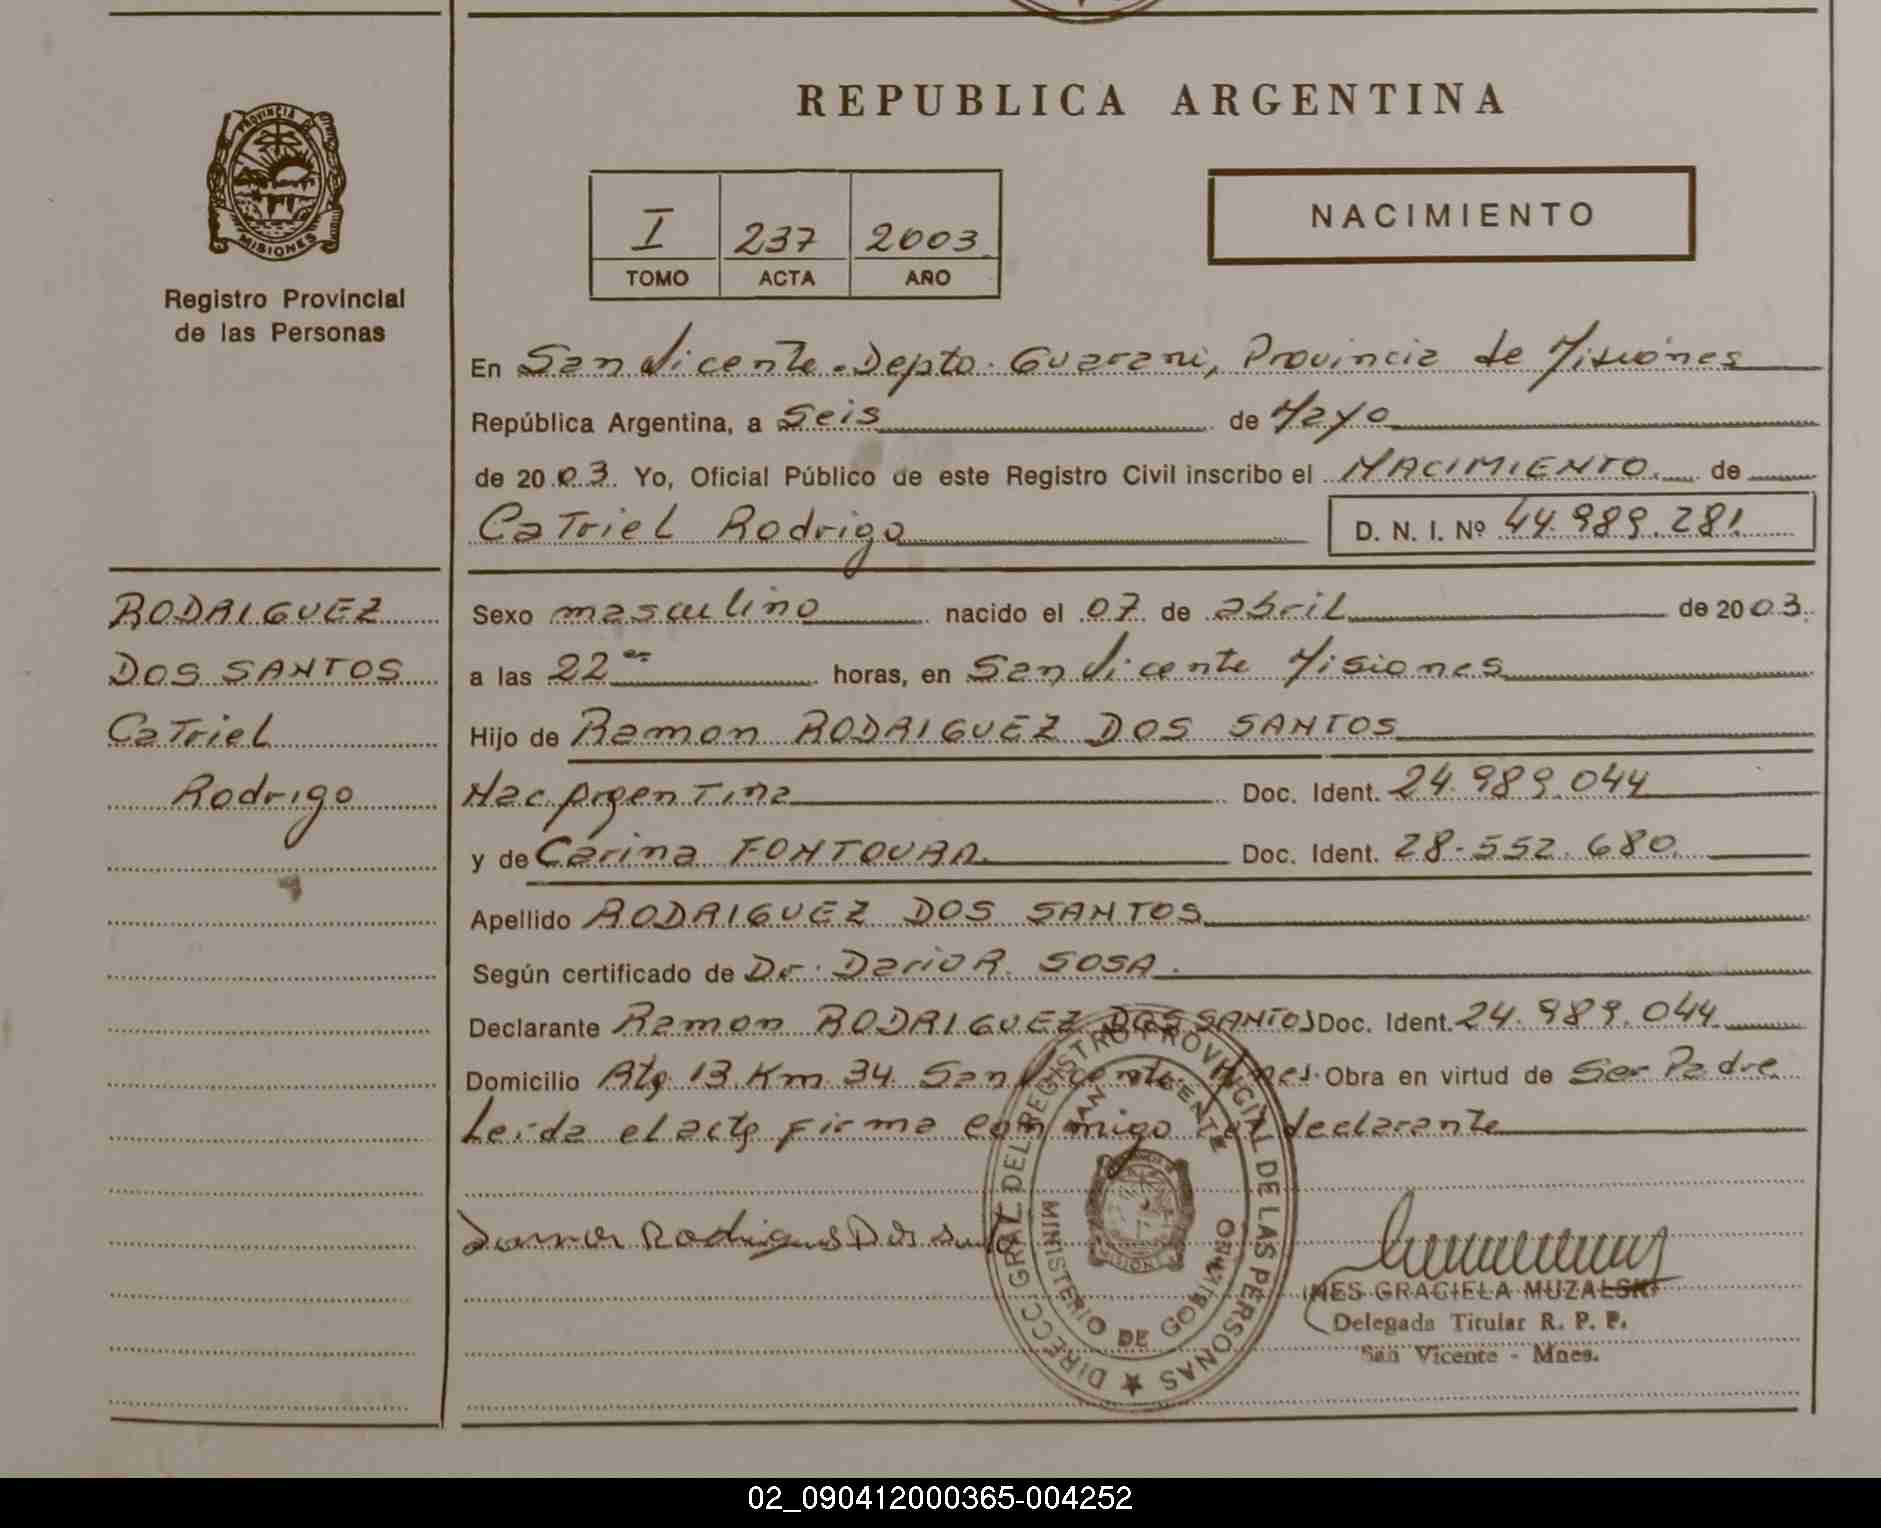 REPUBLICA ARGENTINA
PROVINCIA DE
MISIONES
Registro Provincial
de las Personas
I 237 2003
TOMO ACTA AÑO
NACIMIENTO
En San Vicente - Depto. Guarani, Provincia de Misiones
República Argentina, a Seis de Mayo
de 2003. Yo, Oficial Público de este Registro Civil inscribo el NACIMIENTO. de
Catriel Rodrigo D. N. I. Nº 44.989.281
RODRIGUEZ
DOS SANTOS
Catriel
Rodrigo
Sexo masculino nacido el 07 de abril de 2003.
a las 22 horas, en San Vicente Misiones
Hijo de Ramon RODRIGUEZ DOS SANTOS
Nac Argentina Doc. Ident. 24.989.044
y de Carina FONTOURA Doc. Ident. 28.552.680
Apellido RODRIGUEZ DOS SANTOS
Según certificado de Dr. Dario R. SOSA.
Declarante Ramon RODRIGUEZ DOS SANTOS Doc. Ident. 24.989.044
Domicilio Rta 13 Km 34 San Vicente Mnes. Obra en virtud de Ser Padre
Leida el acta firma conmigo el declarante
DIRECC. GRAL. DEL REGISTRO PROVINCIAL DE LAS PERSONAS
SAN VICENTE
MINISTERIO DE GOBIERNO
MISIONES
Rodrigues Dos
INES GRACIELA MUZALSKI
Delegada Titular R. P. P.
San Vicente - Mnes.
02_090412000365-004252